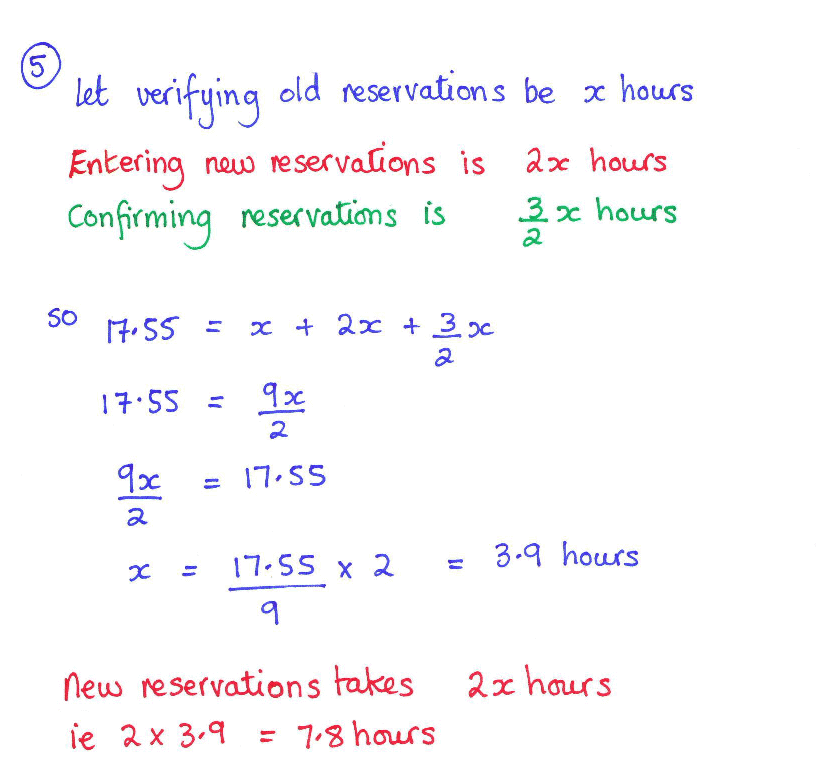 5
let verifying old reservations be x hours
Entering new reservations is 2x hours
Confirming reservations is 3/2 x hours
so 17.55 = x + 2x + 3/2 x
17.55 = 9x/2
9x/2 = 17.55
x = 17.55/9 x 2 = 3.9 hours
New reservations takes 2x hours
ie 2 x 3.9 = 7.8 hours